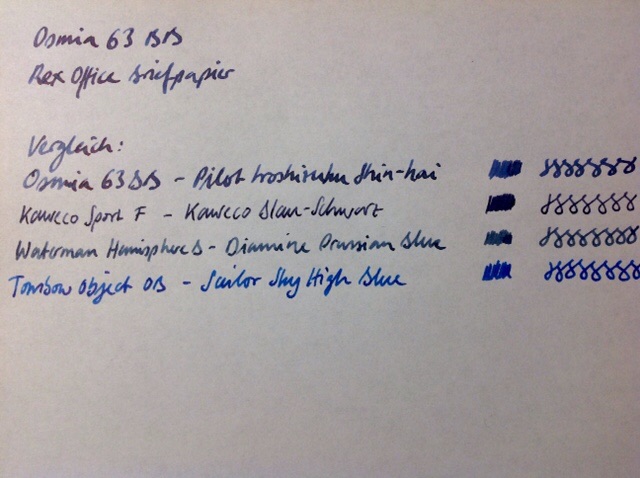 Osmia 63 BB
Rex Office Briefpapier
Vergleich:
Osmia 63 BB - Pilot Iroshizuku Shin-kai
Kaweco Sport F - Kaweco Blau-Schwarz
Waterman Hemisphere B - Diamine Prussian Blue
Tombow Object OB - Sailor Sky High Blue